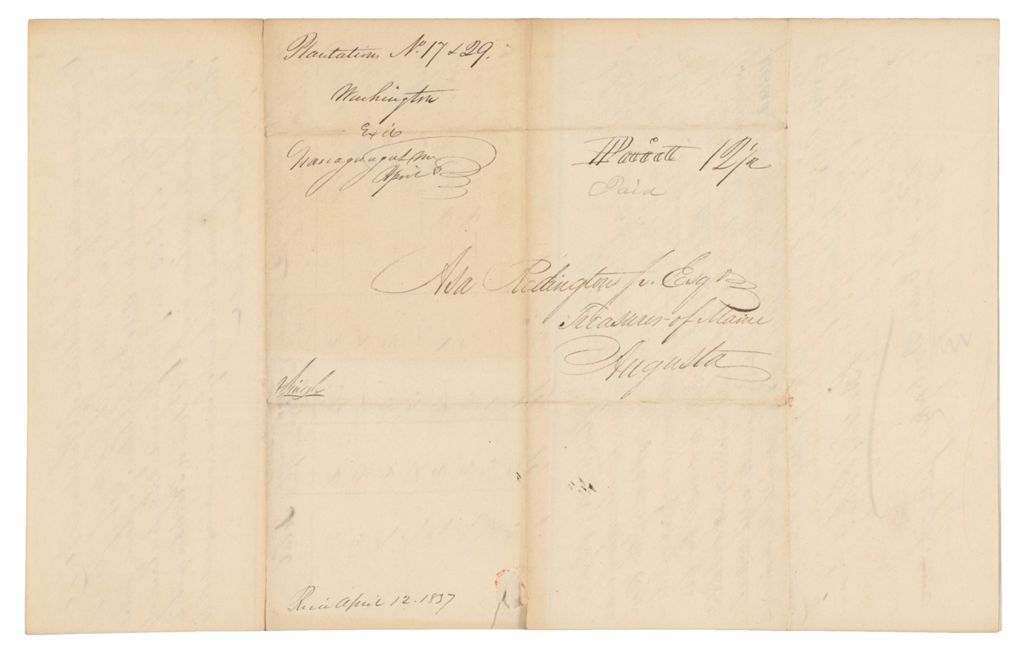 Plantations No. 17 & 29.
Washington
Ex'd
Narraguagus Me
April 8
12 1/2
Paid
Asa Redington Jr. Esqr
Treasurer of Maine
Augusta
Single
Rec'd April 12. 1837